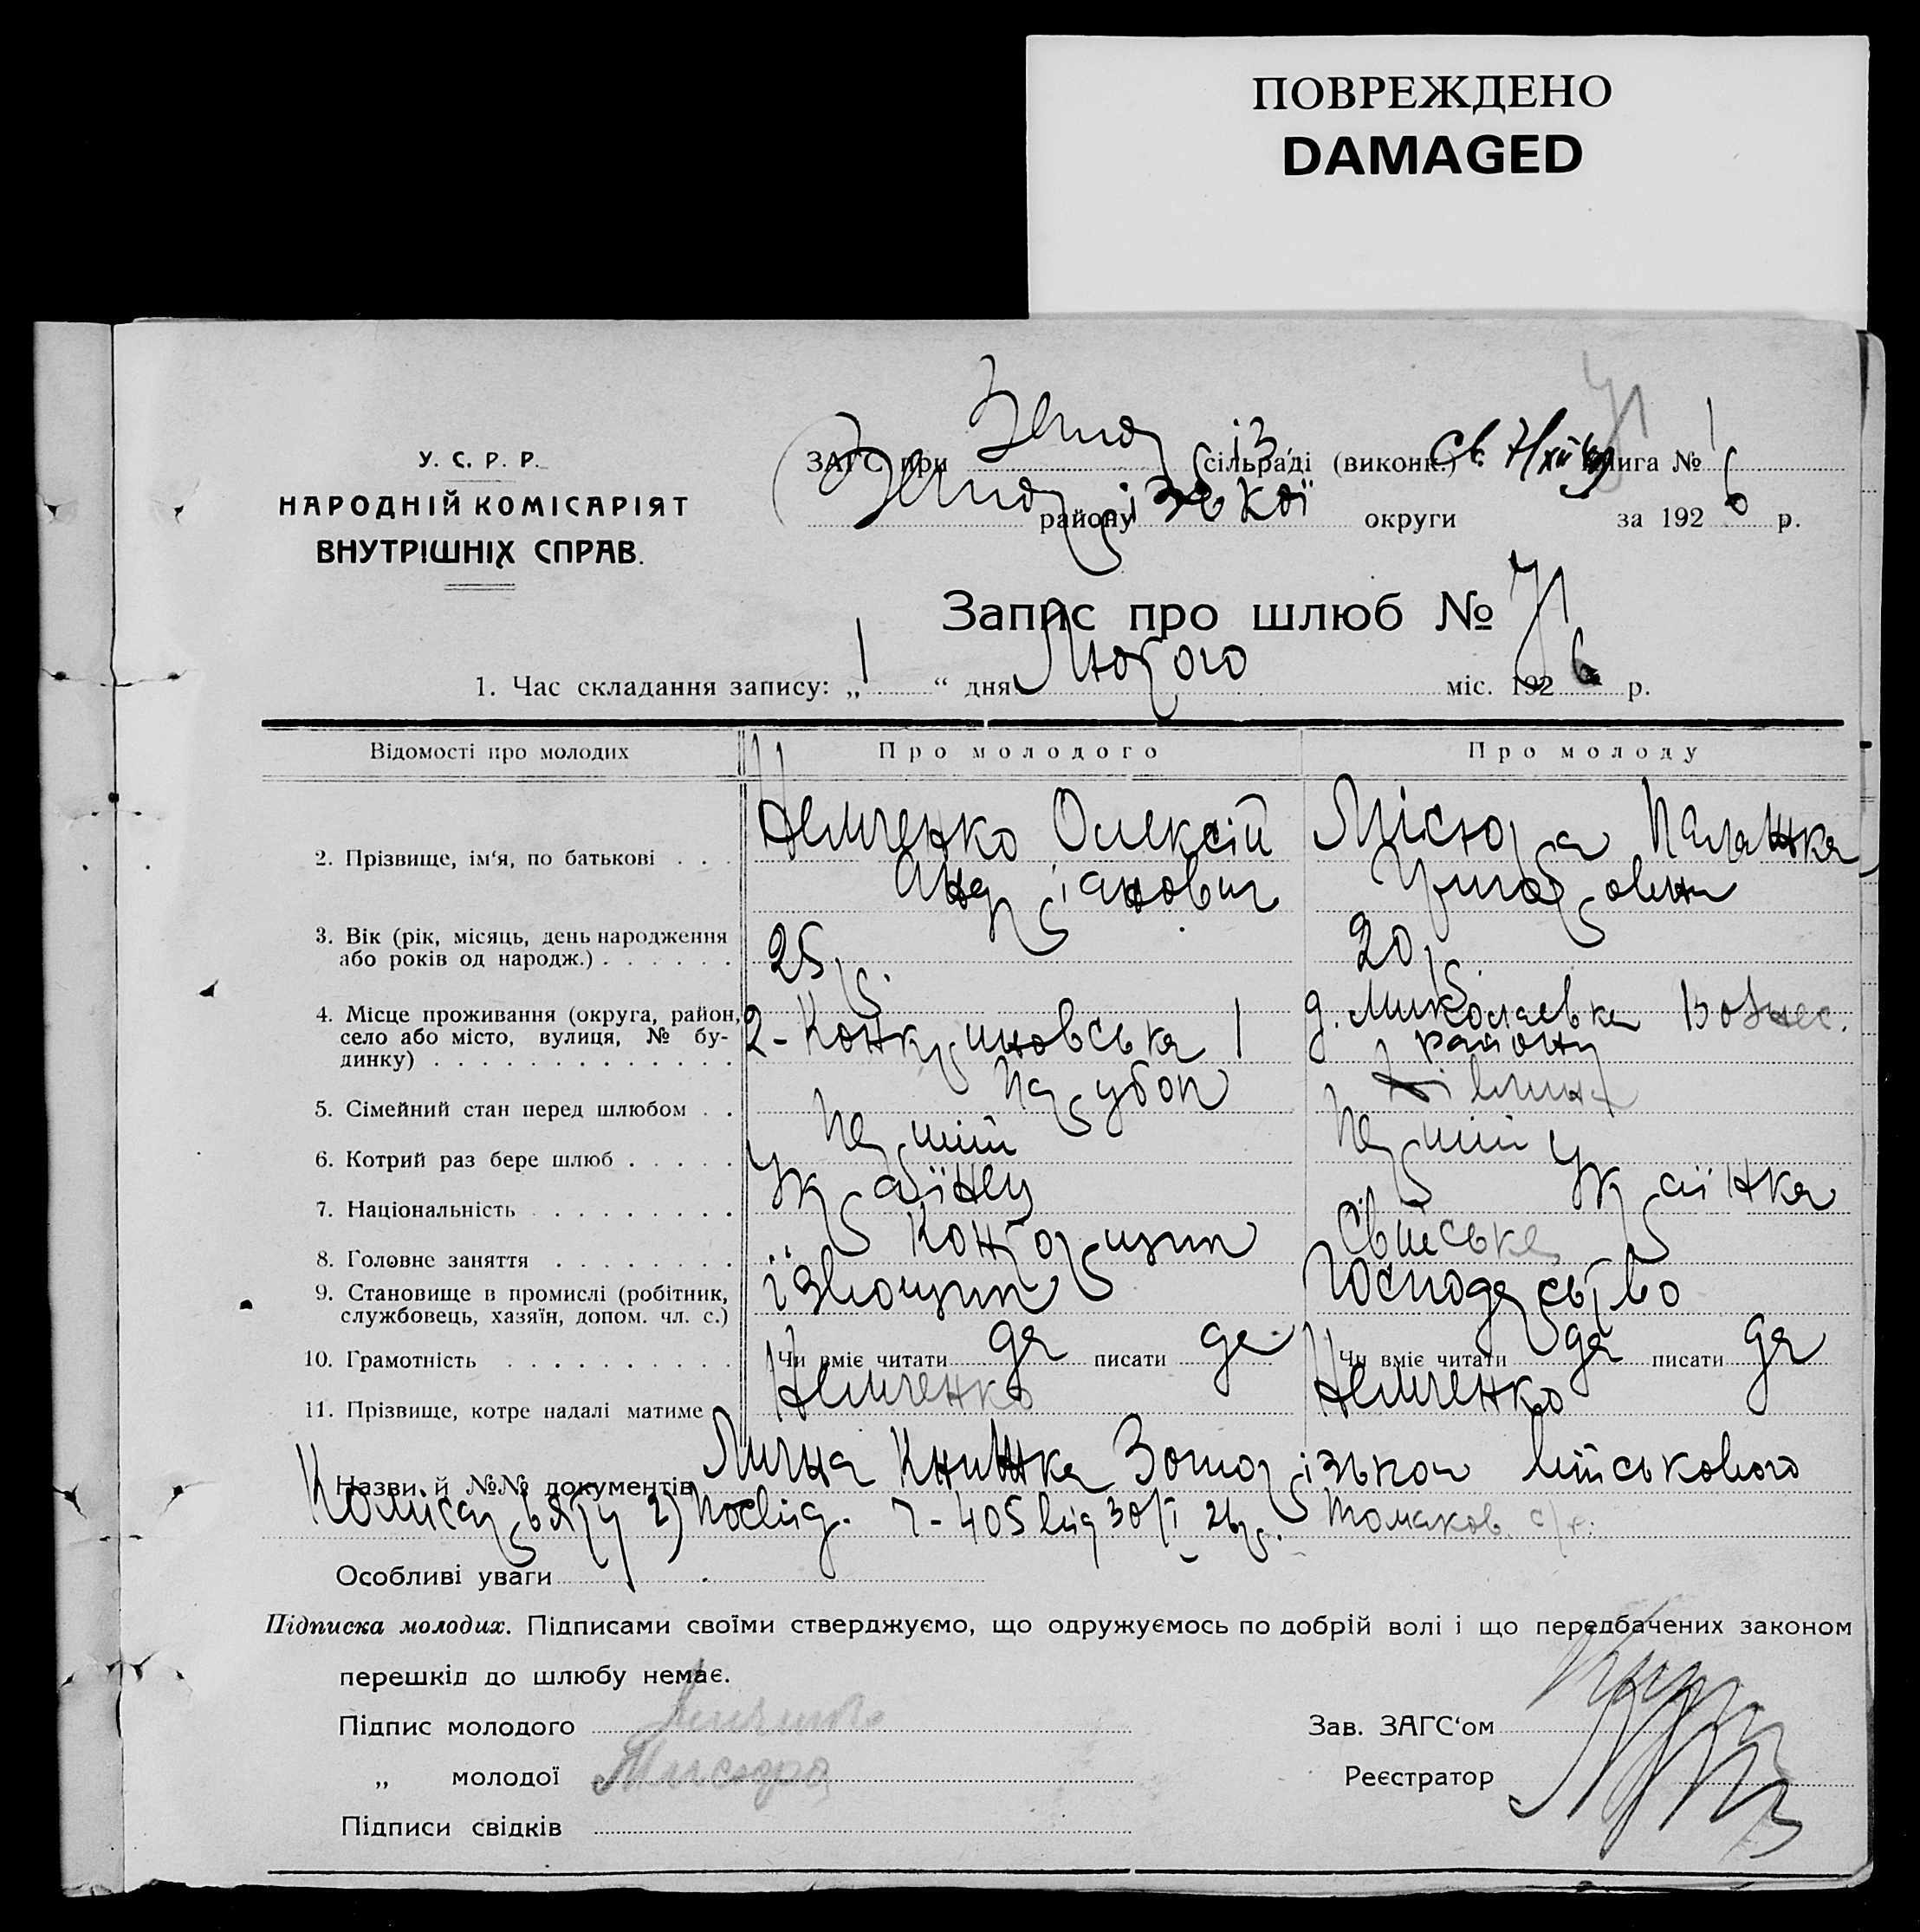 ПОВРЕЖДЕНО
DAMAGED
У. С. Р. Р.
НАРОДНІЙ КОМІСАРІЯТ
ВНУТРІШНІХ СПРАВ.
ЗАГС при сільраді (виконк.) Книга № 1
району округи за 1926 р.
Запис про шлюб № 71
1. Час складання запису: „1“ дня Лютого міс. 1926 р.
Відомості про молодих Про молодого Про молоду
2. Прізвище, ім'я, по батькові . . . Немченко Олексій Місюра Палажка
Андріанович Григоровна
3. Вік (рік, місяць, день народження
або років од народж.) . . . . . . 25 р. 20 р.
4. Місце проживання (округа, район,
село або місто, вулиця, № бу-
динку) . . . . . . . . . . . . . 2- 1 д. Миколаевка Вознес.
району
5. Сімейний стан перед шлюбом . . парубок дівчина
6. Котрий раз бере шлюб . . . . . перший перший
7. Національність . . . . . . . . . Українец Українка
8. Головне заняття . . . . . . . . Конторщик Сільське
9. Становище в промислі (робітник,
службовець, хазяїн, допом. чл. с.) Господарство
10. Грамотність . . . . . . . . . . Чи вміє читати да писати да Чи вміє читати да писати да
11. Прізвище, котре надалі матиме Немченко Немченко
Назви й №№ документів Лична Книжка військового
Комісаріяту 2) Посвід. 7-405 від 30/I 26 р. Томаков. с/р.
Особливі уваги
Підписка молодих. Підписами своїми стверджуємо, що одружуємось по добрій волі і що передбачених законом
перешкід до шлюбу немає.
Підпис молодого Зав. ЗАГС'ом
„ молодої Мисюра Реєстратор
Підписи свідків